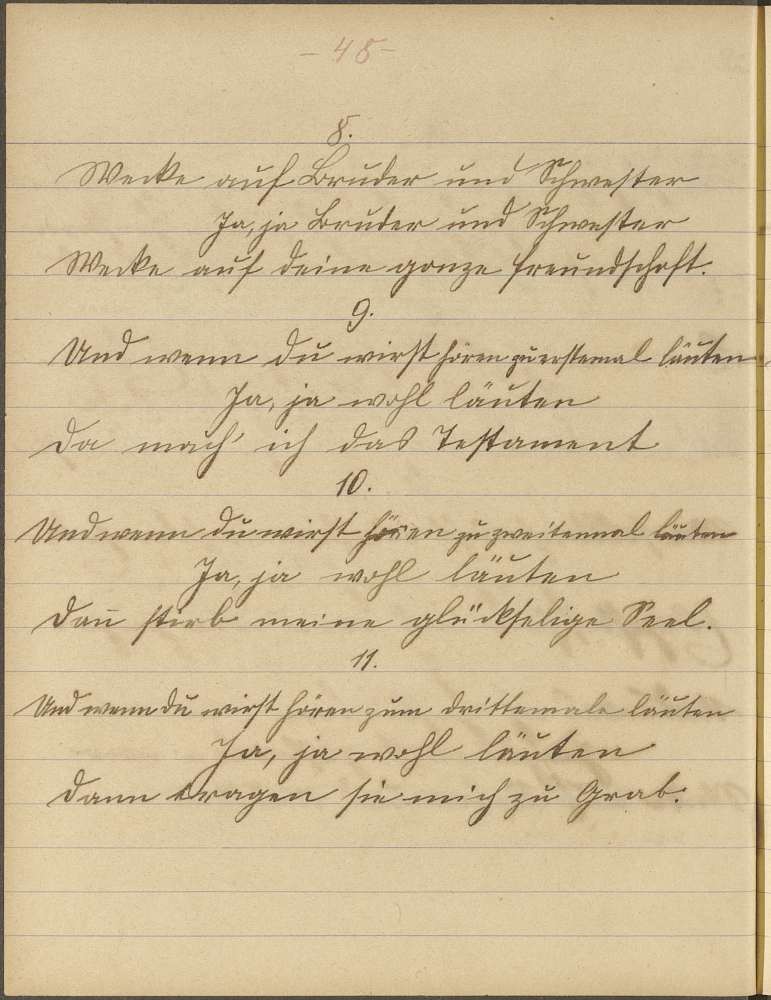 - 48 -
8.
Wecke auf Bruder und Schwester
Ja, ja Bruder und Schwester
Wecke auf deine ganze Freundschaft.
9.
Und wenn du wirst hören zu erstemal läuten
Ja, ja wohl läuten
Da mach' ich das Testament
10.
Und wenn du wirst hören zu zweitenmal läuten
Ja, ja wohl läuten
Dan̄ sterb meine glückselige Seel.
11.
Und wenn du wirst hören zum drittemale läuten
Ja, ja wohl läuten
Dann tragen sie mich zu Grab.